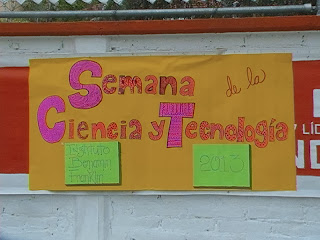 Semana de la
Ciencia y Tecnología
Instituto
Benjamin
Franklin
2013
Y LÍD